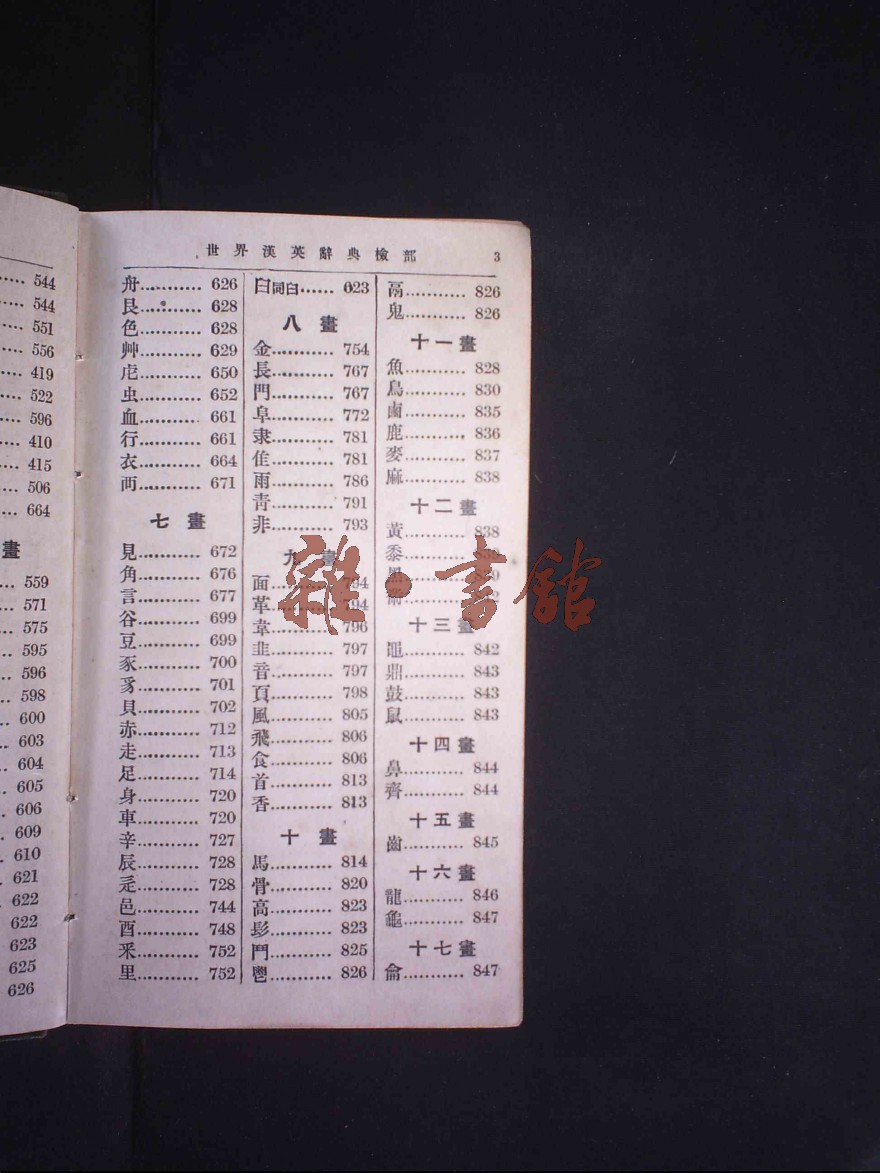 544
544
551
556
419
522
596
410
415
506
664
畫
559
571
575
595
596
598
600
603
604
605
606
609
610
621
622
622
623
625
626
世界漢英辭典檢部 3
舟 626
艮 628
色 628
艸 629
虍 650
虫 652
血 661
行 661
衣 664
襾 671
七畫
見 672
角 676
言 677
谷 699
豆 699
豕 700
豸 701
貝 702
赤 712
走 713
足 714
身 720
車 720
辛 727
辰 728
辵 728
邑 744
酉 748
釆 752
里 752
臼同𦥑 623
八畫
金 754
長 767
門 767
阜 772
隶 781
隹 781
雨 786
靑 791
非 793
九畫
面 794
革 794
韋 796
韭 797
音 797
頁 798
風 805
飛 806
食 806
首 813
香 813
十畫
馬 814
骨 820
高 823
髟 823
鬥 825
鬯 826
鬲 826
鬼 826
十一畫
魚 828
鳥 830
鹵 835
鹿 836
麥 837
麻 838
十二畫
黃 838
黍
黑
黹
十三畫
黽 842
鼎 843
鼓 843
鼠 843
十四畫
鼻 844
齊 844
十五畫
齒 845
十六畫
龍 846
龜 847
十七畫
龠 847
雜·書館